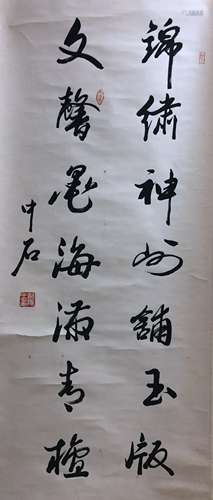 錦繡神州鋪玉版
文馨墨海滿青檀
中石